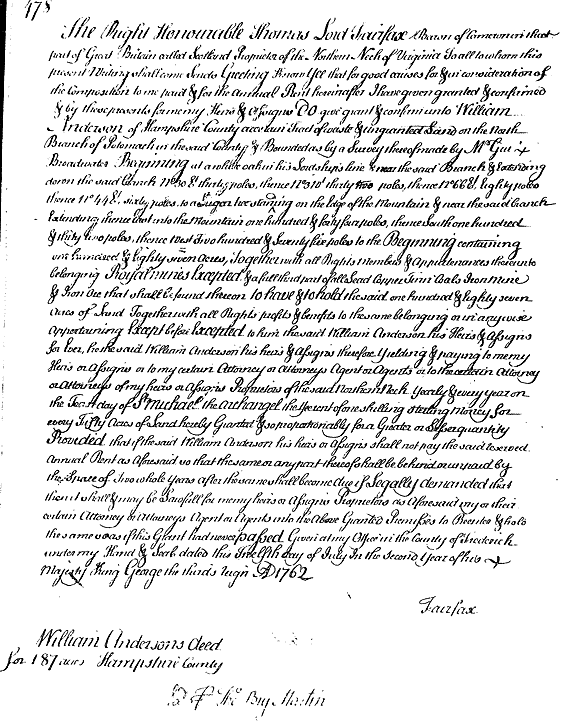 478
The Right Honourable Thomas Lord Fairfax Baron of Cameron in that
part of Great Britain called Scotland Proprietor of the Northern Neck of Virginia To all to whom this
present Writing shall come Sends Greeting Know Yee that for good causes for & in consideration of
the Composition to me paid & for the annual Rent hereinafter I have given granted & confirmed
& by these presents for me my Heirs & Assigns DO give grant & confirm unto William
Anderson of Hampshire County a certain Tract of waste & ungranted Land on the North
Branch of Potomack in the said County & Bounded as by a Survey thereof made by Mr Guy
Broadwater Beginning at a white oak in his Lordships line & near the said Branch & Extending
down the said branch No 30 Et thirty poles, thence No 10 thirty two poles, thence No 66 Et eighty poles
thence No 44 Et sixty poles to a Sugar tree standing on the Edge of the Mountain & near the said branch
Extending thence East into the Mountain one hundred & forty four poles, thence South one hundred
& thirty two poles, thence West Two hundred & Seventy five poles to the Beginning containing
one hundred & eighty seven Acres, Together with all Rights members & Appurtenances thereunto
belonging Royal mines Excepted & a full third part of all Lead Copper Tinn Coals Iron mine
& Iron Ore that shall be found thereon to have & to hold the said one hundred & eighty seven
Acres of Land Together with all Rights profits & benefits to the same belonging or in any wise
Appertaining Except before Excepted to him the said William Anderson his Heirs & Assigns
for Ever, he the said William Anderson his heirs & Assigns therefore Yielding & paying to me my
Heirs or Assigns or to my certain Attorney or Attorneys Agent or Agents or to the certain Attorney
or Attorneys of my heirs or Assigns Proprietors of the said Northern Neck Yearly & every year on
the Feast day of St Michael the Archangel the Fee rent of one shilling sterling Money for
every Fifty Acres of Land hereby Granted & so proportionably for a Greater or Lesser quantity
Provided that if the said William Anderson his heirs or Assigns shall not pay the said reserved
Annual Rent as Aforesaid so that the same or any part thereof shall be behind or unpaid by
the Space of Two whole Years after the same shall become due if Legally demanded that
then it shall & may be Lawfull for me my heirs or Assigns Proprietors as Aforesaid my or their
certain Attorney or Attorneys Agent or Agents into the Above Granted Premisses to Reenter & hold
the same so as if this Grant had never passed Given at my Office in the County of Frederick
under my Hand & Seal dated this twelfth day of July In the second Year of his
Majesty King George the thirds reign AD 1762
Fairfax
William Andersons deed
for 187 acres Hampshire County
Bry Martin